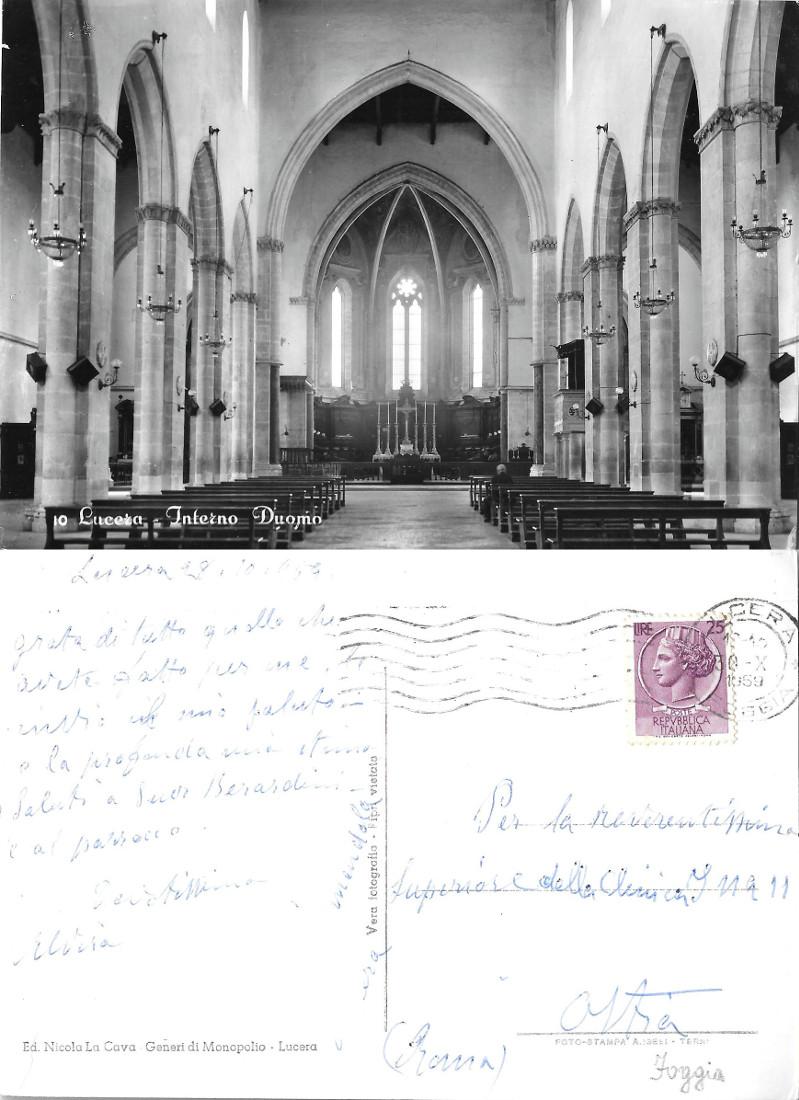 10 Lucera - Interno Duomo
Lucera 28.10.959
grata di tutto quello che
avete fatto per me, 
invio il mio saluto
e la profonda mia stima
Saluti a Suor Berardini
e al parroco.
Devotissima
Vera fotografia - Ripr. vietata
LUCERA
30-X
1959
FOGGIA
LIRE 25
POSTE
REPVBBLICA
ITALIANA
Per la reverentissima
Superiora della Clinica
Ostia
(Roma)
Ed. Nicola La Cava Generi di Monopolio - Lucera
FOTO-STAMPA - TERNI
Foggia